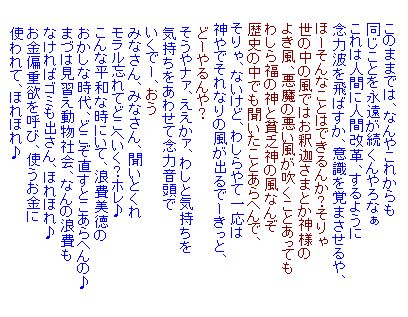 このままでは、なんやこれからも
同じことを永遠が続くんやろなぁ
これは人間に人間改革、するように
念力波を飛ばすか、意識を覚まさせるや、
ほーそんなことはできるんか？そりゃ
世の中の風ではお釈迦さまとか神様の
よき風、悪魔の悪い風が吹くことあっても
わしら福の神と貧乏神の風なんぞ
歴史の中でも聞いたことあらへんで、
そりゃ、ないけど、わしらやて一応は
神やでそれなりの風が出るでーきっと、
どーやるんや？
そうやナァ、ええかァ、わしと気持ちを
気持ちをあわせて念力音頭で
いくでー、おう
みなさん、みなさん、聞いとくれ
モラル忘れてどこへいく？ホレ♪
こんな平和な時にいて、浪費美徳の
おかしな時代、どこぞ直すとこあらへんの♪
まずは見習え動物社会、なんの浪費も
なければゴミも出さん、ほれほれ♪
お金偏重欲を呼び、使うお金に
使われて、ほれほれ♪